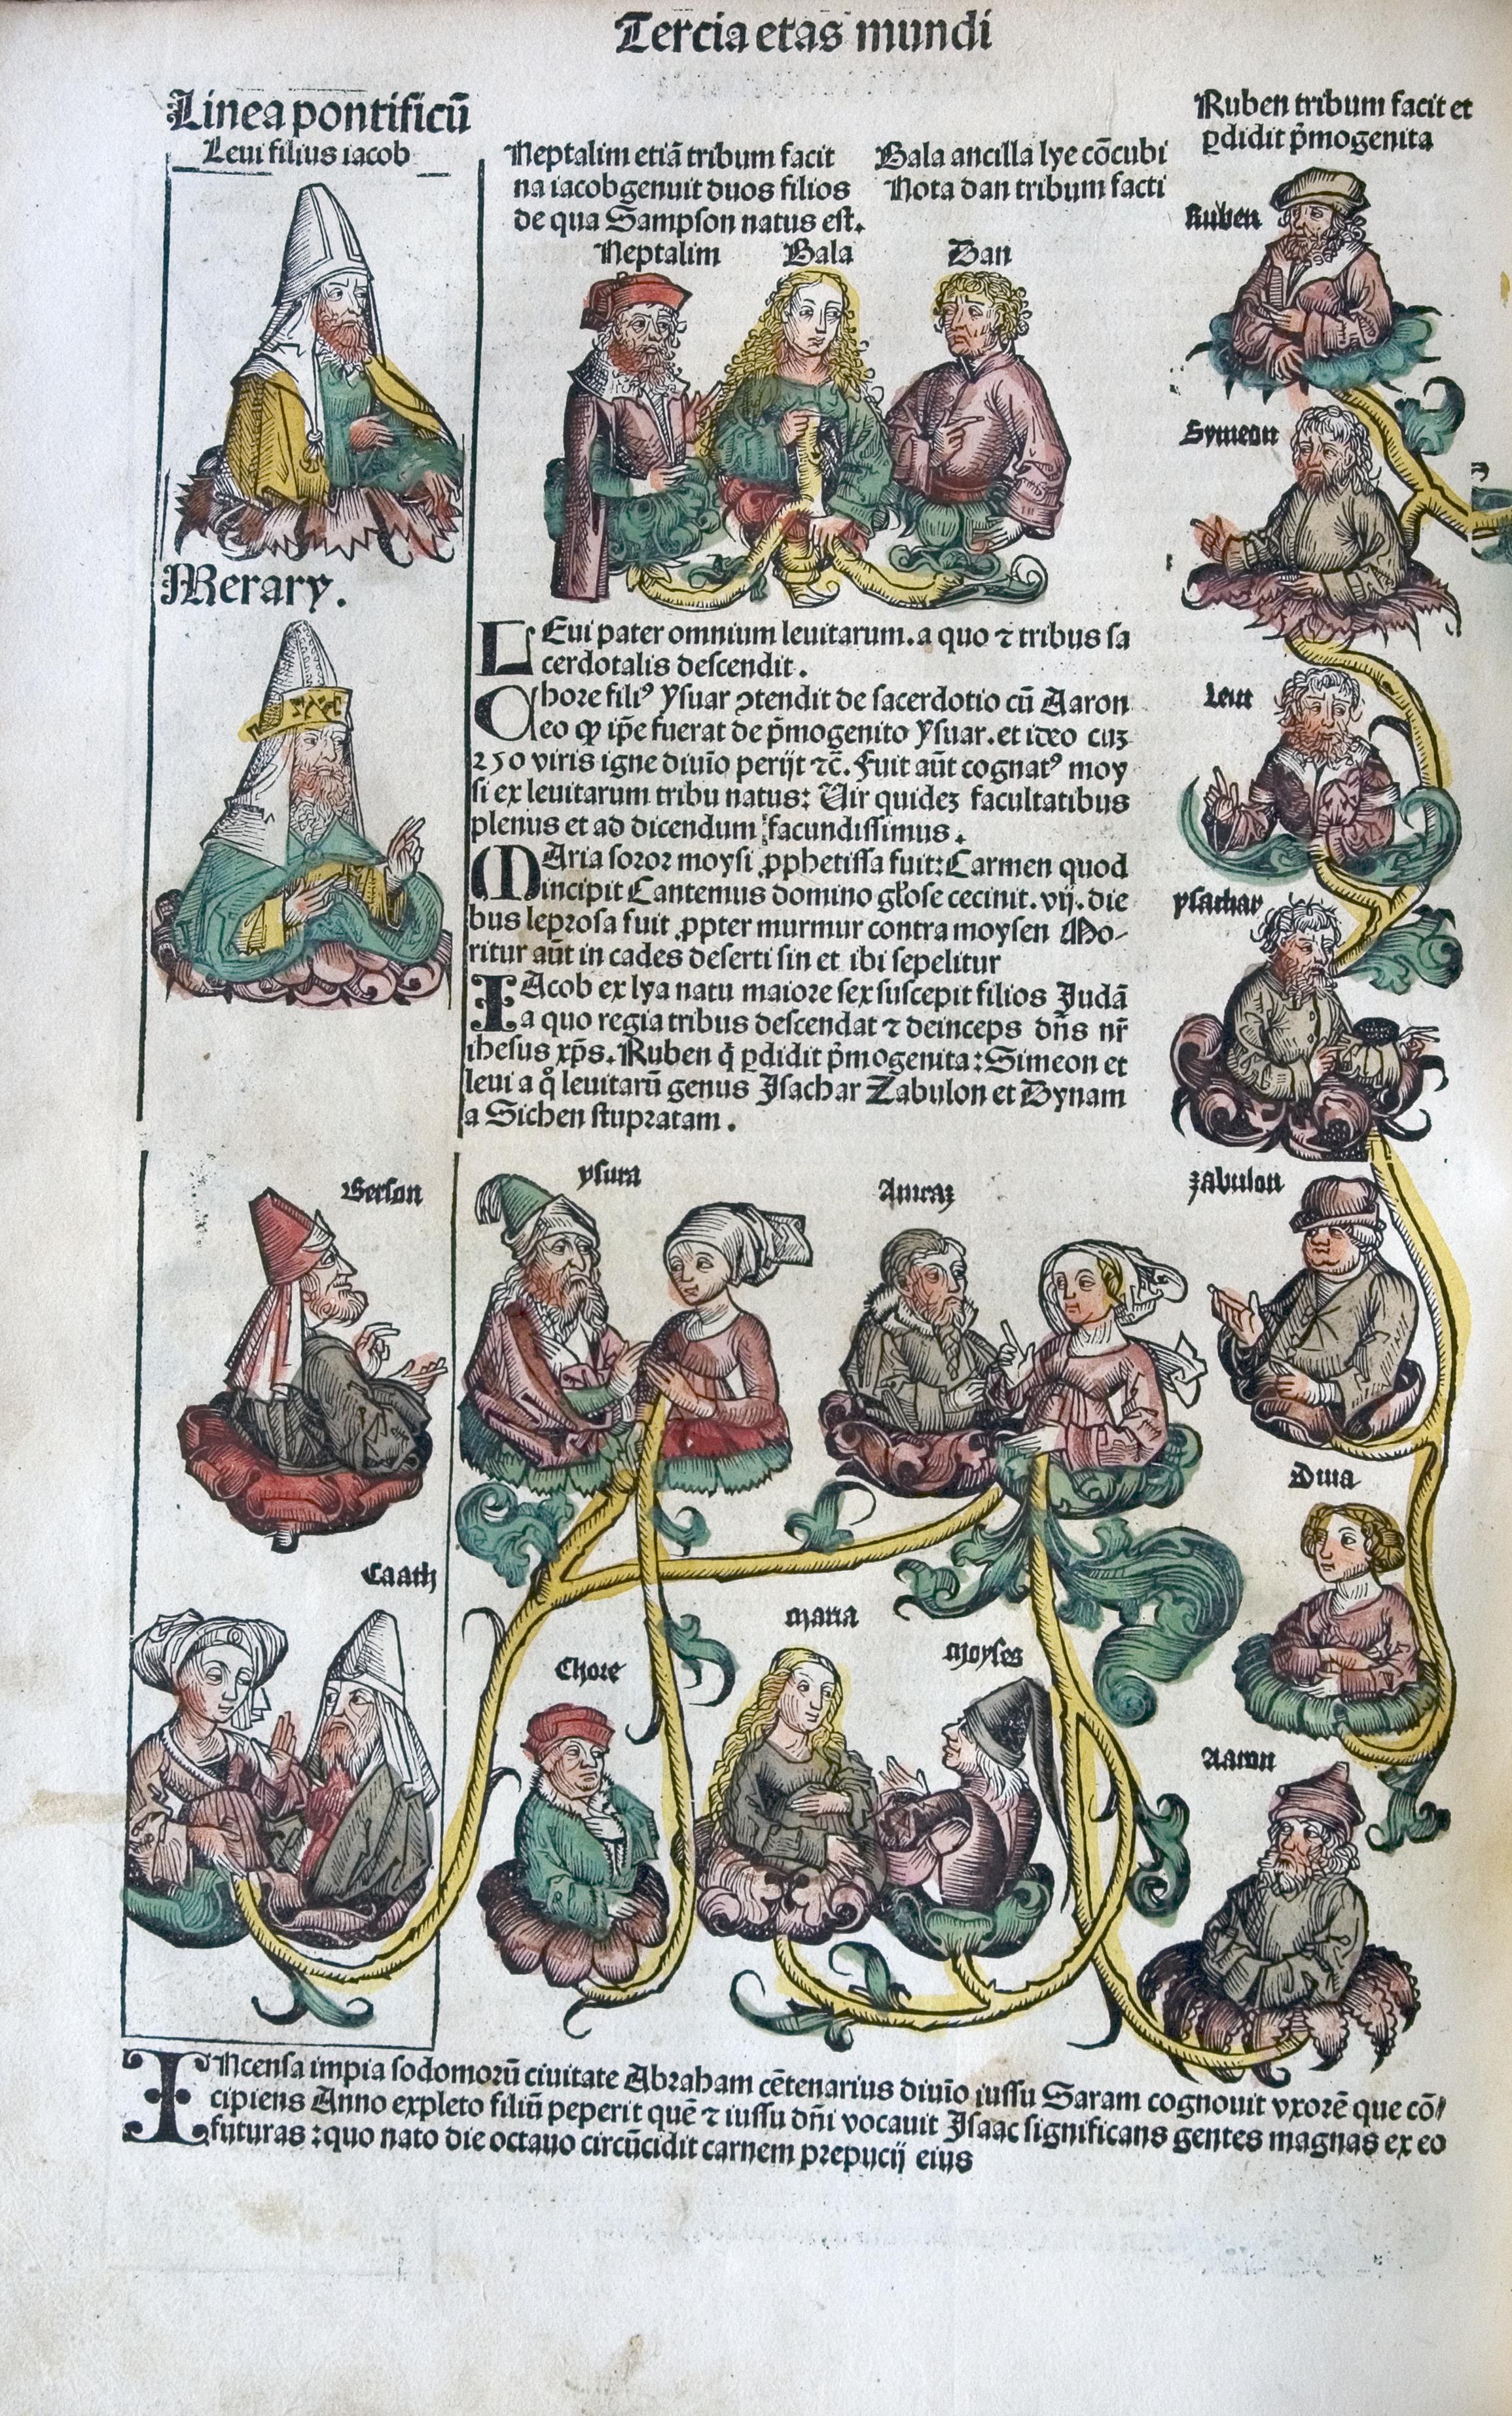 Tercia etas mundi
Linea pontificū
Leui filius iacob
Merary.
Neptalim etiā tribum facit
na iacob genuit duos filios
de qua Sampson natus est.
Bala ancilla lye cōcubi
Nota dan tribum facti
Neptalim
Bala
Dan
Ruben tribum facit et
ꝑdidit p̄mogenita
Ruben
Symeon
Leui
ysachar
LEui pater omnium leuitarum. a quo ⁊ tribus sa
cerdotalis descendit.
Chore filiꝰ ysuar ↄtendit de sacerdotio cū Aaron
eo ꝙ ip̄e fuerat de p̄mogenito ysuar. et ideo cuꝫ
250 viris igne diuīo perijt ⁊c̄. Fuit aūt cognatꝰ moy
si ex leuitarum tribu natus: Uir quideꝫ facultatibus
plenus et ad dicendum facundissimus.
MAria soror moysi ꝓphetissa fuit: Carmen quod
incipit Cantemus domino gl'ose cecinit. vij. die
bus leprosa fuit ꝓpter murmur contra moysen Mo-
ritur aūt in cades deserti sin et ibi sepelitur
IAcob ex lya natu maiore sex suscepit filios Judā
a quo regia tribus descendat ⁊ deinceps dn̄s nr̄
ihesus xp̄s. Ruben q̄ ꝑdidit p̄mogenita: Simeon et
leui a qͦ leuitarū genus Isachar Zabulon et Dynam
a Sichen stupratam.
Gerson
ysura
Amraꝫ
zabulon
Dina
Caath
Chore
maria
moyses
Aaron
INcensa impia sodomorū ciuitate Abraham cētenarius diuīo iussu Saram cognouit vxorē que cō/
cipiens Anno expleto filiū peperit quē ⁊ iussu dn̄i vocauit Isaac significans gentes magnas ex eo
futuras: quo nato die octauo circūcidit carnem prepucij eius